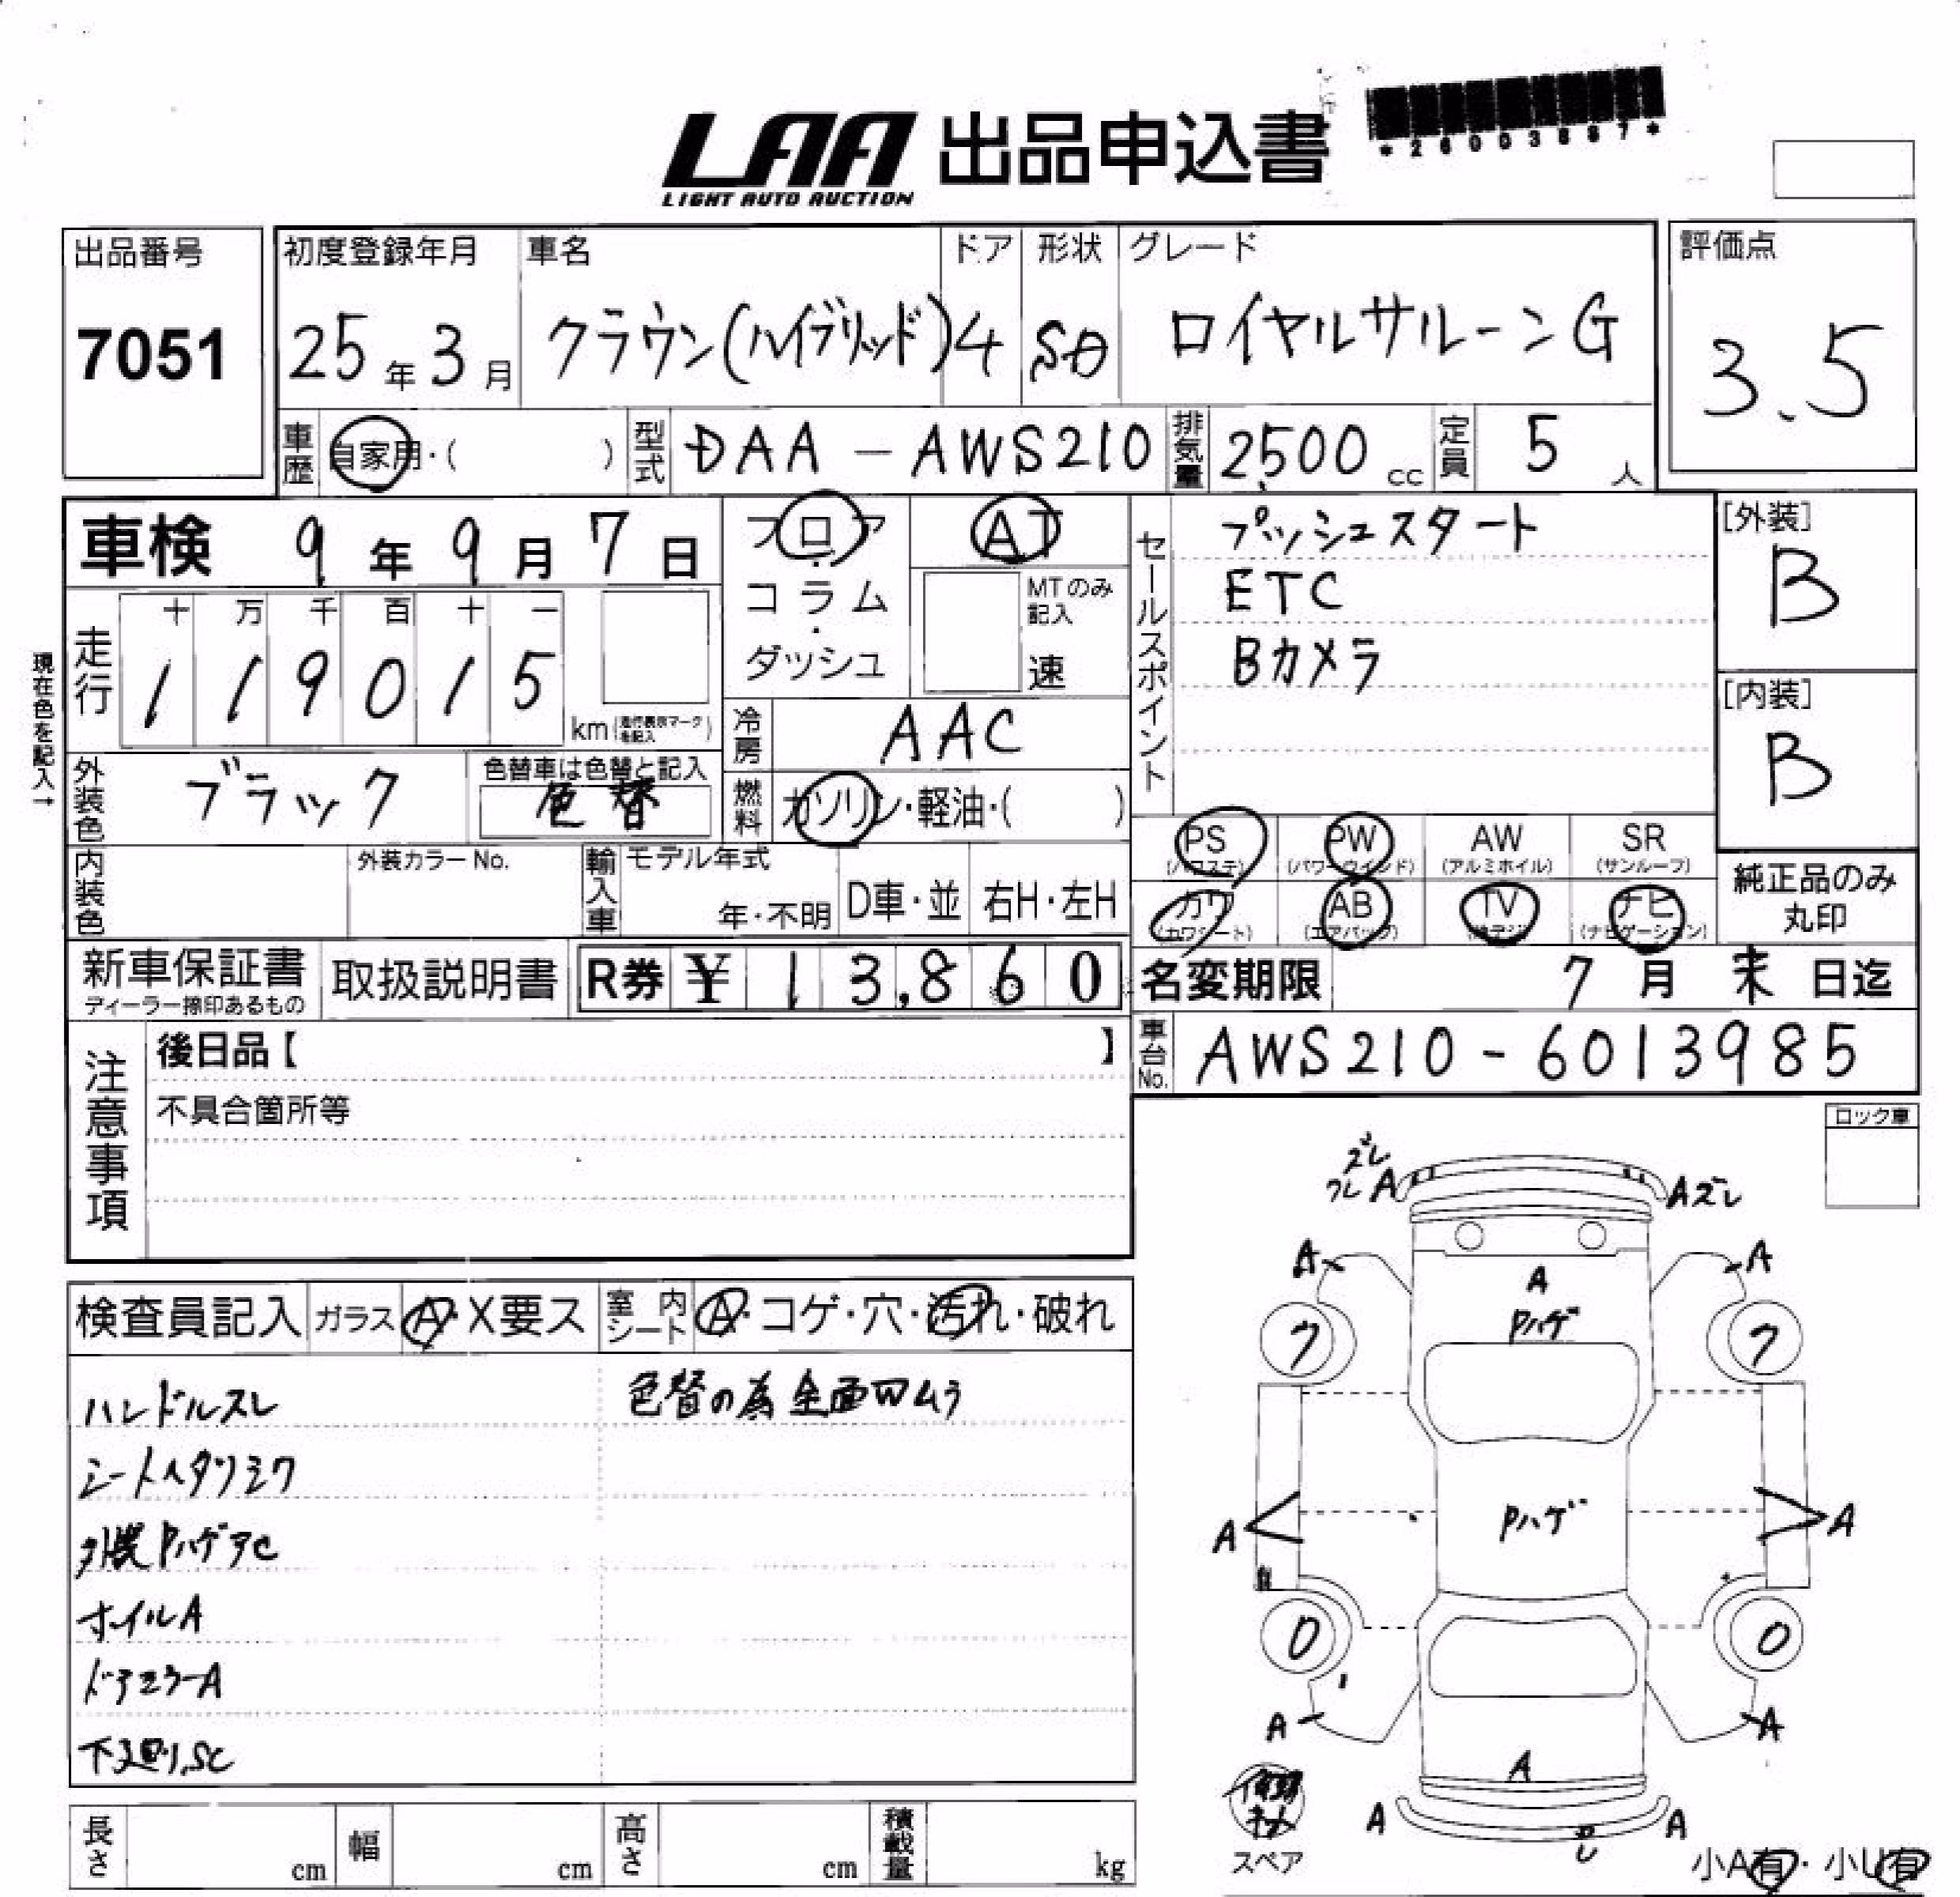 LAA 出品申込書
LIGHT AUTO AUCTION
*26003887*
出品番号
7051
初度登録年月
25年3月
車名
クラウン(ハイブリッド)
ドア
4
形状
SD
グレード
ロイヤルサルーンG
評価点
3.5
車歴 自家用・( )
型式 DAA-AWS210
排気量 2500 cc
定員 5 人
車検 9年9月7日
フロア・コラム・ダッシュ
AT
MTのみ記入
速
セールスポイント
プッシュスタート
ETC
Bカメラ
[外装]
B
[内装]
B
現在色を記入→
走行
十 万 千 百 十 一
1 1 9 0 1 5
km(走行表示マークを記入)
冷房 AAC
外装色 ブラック
色替車は色替と記入
色替
燃料 ガソリン・軽油・( )
内装色
外装カラーNo.
輸入車
モデル年式
年・不明
D車・並
右H・左H
PS (パワステ)
PW (パワーウインド)
AW (アルミホイル)
SR (サンルーフ)
カワ (カワシート)
AB (エアバッグ)
TV (地デジ)
ナビ (ナビゲーション)
純正品のみ丸印
新車保証書
ディーラー捺印あるもの
取扱説明書
R券 ¥ 13,860
名変期限 7月末日迄
注意事項
後日品【 】
不具合箇所等
車台No. AWS210-6013985
ロック車
検査員記入
ガラス A・X要ス
室内シート A・コゲ・穴・汚れ・破れ
ハンドルスレ
シートヘタリシワ
外装Pハゲアセ
ホイルA
ドアミラーA
下廻りSC
色替の為全面Wムラ
ズレ
ワレ A
Aズレ
A
A
A
Pハゲ
7
7
Pハゲ
A
A
0
0
A
A
A
A
A
スペア
小A有・小U有
長さ cm
幅 cm
高さ cm
積載量 kg